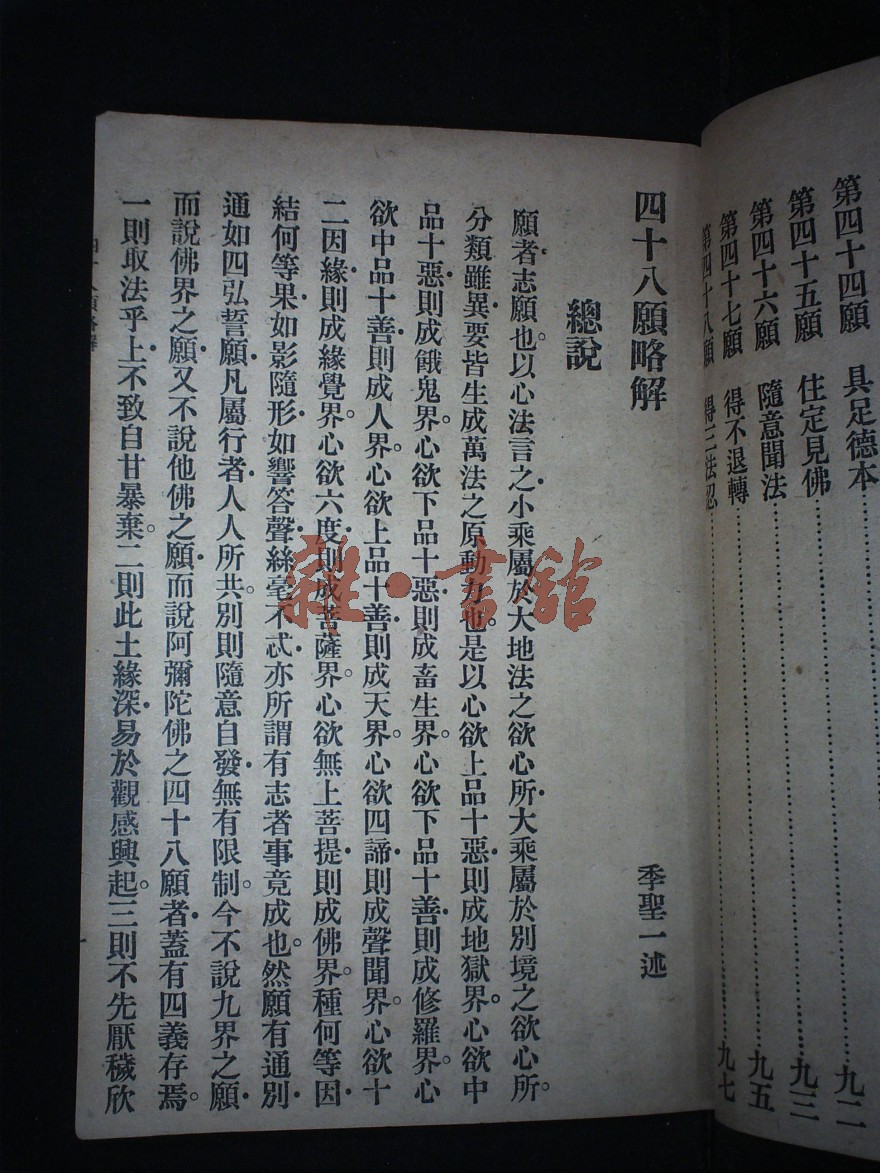 第四十四願　具足德本………九二
第四十五願　住定見佛………九三
第四十六願　隨意聞法………九五
第四十七願　得不退轉
第四十八願　得三法忍………九七
四十八願略解　季聖一述
總說
願者志願也。以心法言之。小乘屬於大地法之欲心所。大乘屬於別境之欲心所。
分類雖異。要皆生成萬法之原動力也。是以心欲上品十惡。則成地獄界。心欲中
品十惡。則成餓鬼界。心欲下品十惡。則成畜生界。心欲下品十善。則成修羅界。心
欲中品十善。則成人界。心欲上品十善。則成天界。心欲四諦。則成聲聞界。心欲十
二因緣。則成緣覺界。心欲六度。則成菩薩界。心欲無上菩提。則成佛界。種何等因。
結何等果。如影隨形。如響答聲。絲毫不忒。亦所謂有志者事竟成也。然願有通別。
通如四弘誓願。凡屬行者。人人所共。別則隨意自發。無有限制。今不說九界之願。
而說佛界之願。又不說他佛之願。而說阿彌陀佛之四十八願者。蓋有四義存焉。
一則取法乎上。不致自甘暴棄。二則此土緣深。易於觀感興起。三則不先厭穢欣
四十八願略解
一
雜·書館